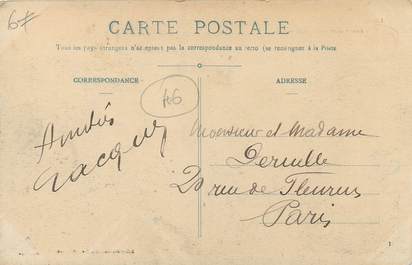 6#
CARTE POSTALE
Tous les pays étrangers n'acceptent pas la correspondance au recto (se renseigner à la Poste
CORRESPONDANCE
ADRESSE
Amitiés
Jacques
Monsieur et Madame
20 rue de Fleurus
Paris